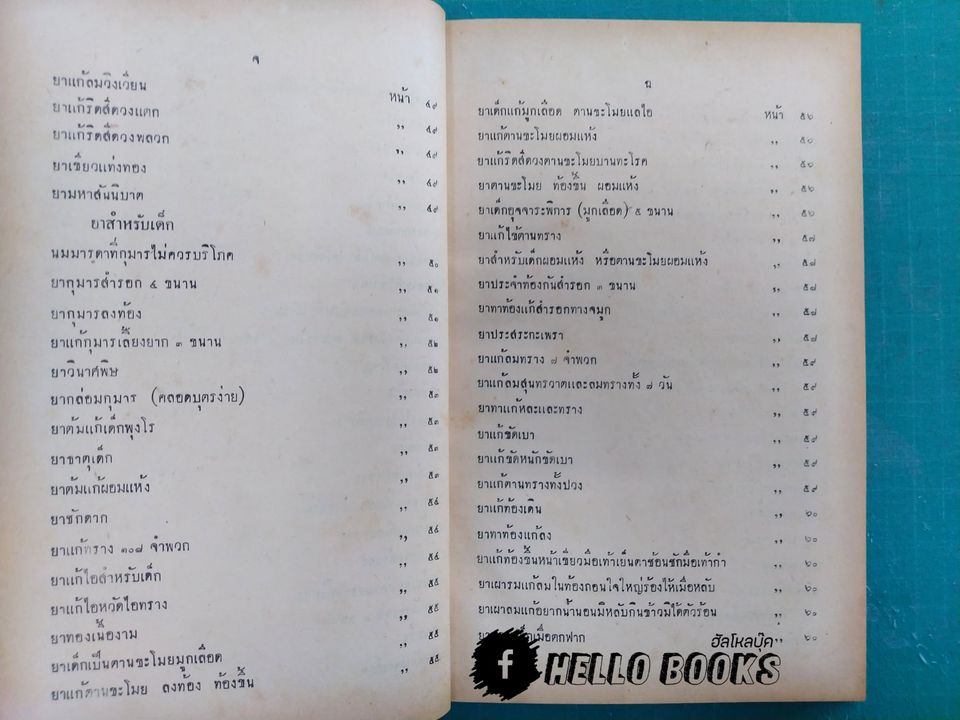 จ
ยาแก้ลมวิงเวียน หน้า ๔๙
ยาแก้ริดสีดวงแตก ,, ๔๙
ยาแก้ริดสีดวงพลวก ,, ๔๙
ยาเขียวแท่งทอง ,, ๔๙
ยามหาสันนิบาต ,, ๔๙
ยาสำหรับเด็ก
นมมารดาที่กุมารไม่ควรบริโภค ,, ๕๐
ยากุมารสำรอก ๔ ขนาน ,, ๕๑
ยากุมารลงท้อง ,, ๕๑
ยาแก้กุมารเลี้ยงยาก ๓ ขนาน ,, ๕๒
ยาวินาศพิษ ,, ๕๒
ยากล่อมกุมาร (คลอดบุตรง่าย) ,, ๕๓
ยาต้มแก้เด็กพุงโร ,, ๕๓
ยาธาตุเด็ก ,, ๕๓
ยาต้มแก้ผอมแห้ง ,, ๕๔
ยาชักตาก ,, ๕๔
ยาแก้ทราง ๑๐๘ จำพวก ,, ๕๔
ยาแก้ไอสำหรับเด็ก ,, ๕๕
ยาแก้ไอหวัดไอทราง ,, ๕๕
ยาทองเนื้องาม ,, ๕๕
ยาเด็กเป็นตานขะโมยมูกเลือด ,, ๕๕
ยาแก้ตานขะโมย ลงท้อง ท้องขึ้น
ฉ
ยาเด็กแก้มูกเลือด ตานขะโมยแลไอ หน้า ๕๖
ยาแก้ตานขะโมยผอมแห้ง ,, ๕๖
ยาแก้ริดสีดวงตานขะโมยบานทะโรค ,, ๕๖
ยาตานขะโมย ท้องขึ้น ผอมแห้ง ,, ๕๖
ยาเด็กอุจจาระพิการ (มูกเลือด) ๕ ขนาน ,, ๕๖
ยาแก้ไข้ตานทราง ,, ๕๗
ยาสำหรับเด็กผอมแห้ง หรือตานขะโมยผอมแห้ง ,, ๕๘
ยาประจำท้องกันสำรอก ๓ ขนาน ,, ๕๘
ยาทาท้องแก้สำรอกทางจมูก ,, ๕๘
ยาประสระกะเพรา ,, ๕๘
ยาแก้ลมทราง ๗ จำพวก ,, ๕๙
ยาแก้ลมสุนทรวาตและลมทรางทั้ง ๗ วัน ,, ๕๙
ยาทาแก้หละและทราง ,, ๕๙
ยาแก้ขัดเบา ,, ๕๙
ยาแก้ขัดหนักขัดเบา ,, ๕๙
ยาแก้ตานทรางทั้งปวง ,, ๕๙
ยาแก้ท้องเดิน ,, ๖๐
ยาทาท้องแก้ลง ,, ๖๐
ยาแก้ท้องขึ้นหน้าเขียวมือเท้าเย็นตาช้อนชักมือเท้ากำ ,, ๖๐
ยาเผารมแก้ลมในท้องถอนใจใหญ่ร้องไห้เมื่อหลับ ,, ๖๐
ยาเผาลมแก้อยากน้ำนอนมิหลับกินข้าวมิได้ตัวร้อน ,, ๖๐
เมื่อตกฟาก ,, ๖๐
ฮัลโหลบุ๊ค
f HELLO BOOKS